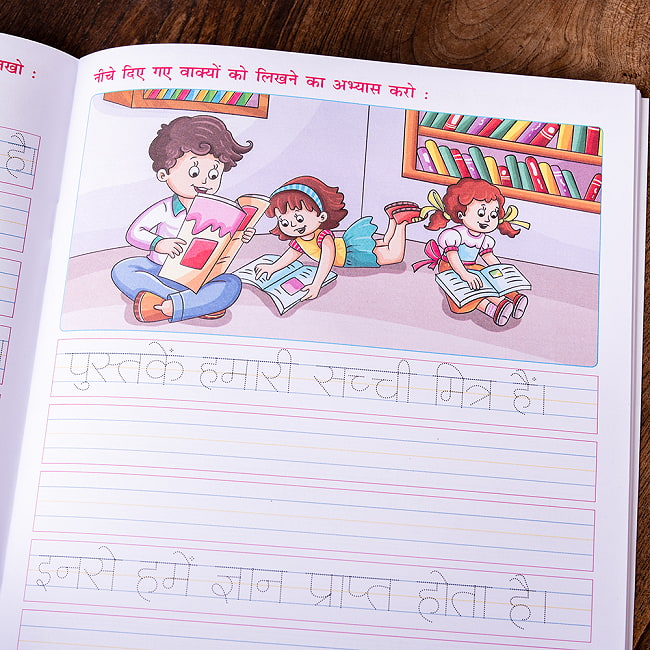 नीचे दिए गए वाक्यों को लिखने का अभ्यास करो :
पुस्तकें हमारी सच्ची मित्र हैं।
इनसे हमें ज्ञान प्राप्त होता है।